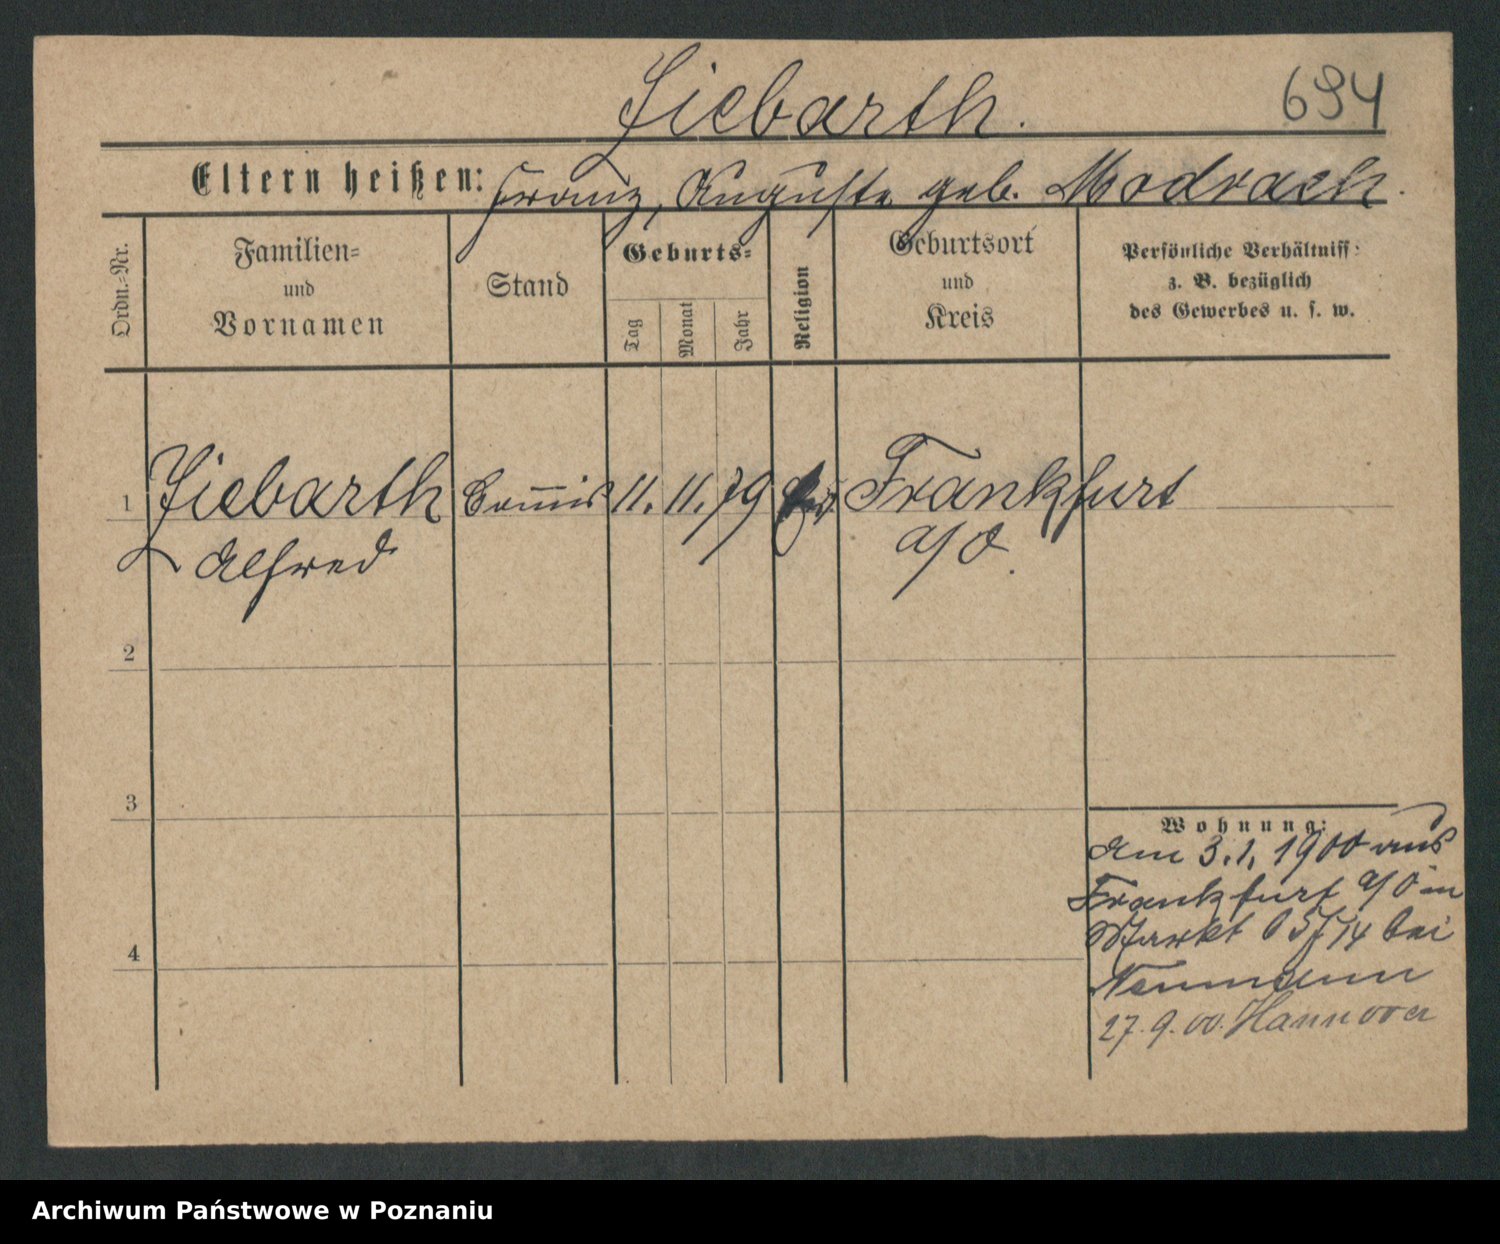 Ziebarth.
694
Eltern heißen: Franz, Auguste geb. Modrach.
Ordn.-Nr.
Familien-
und
Vornamen
Stand
Geburts-
Tag
Monat
Jahr
Religion
Geburtsort
und
Kreis
Persönliche Verhältniss
z. B. bezüglich
des Gewerbes u. s. w.
1 Ziebarth Commis 11. 11. 79 Frankfurt
Alfred a/O.
2
3
Wohnung:
Am 3.1. 1900 aus
Frankfurt a/O in
Markt bei
4
Neumann
27.9.00. Hannover
Archiwum Państwowe w Poznaniu